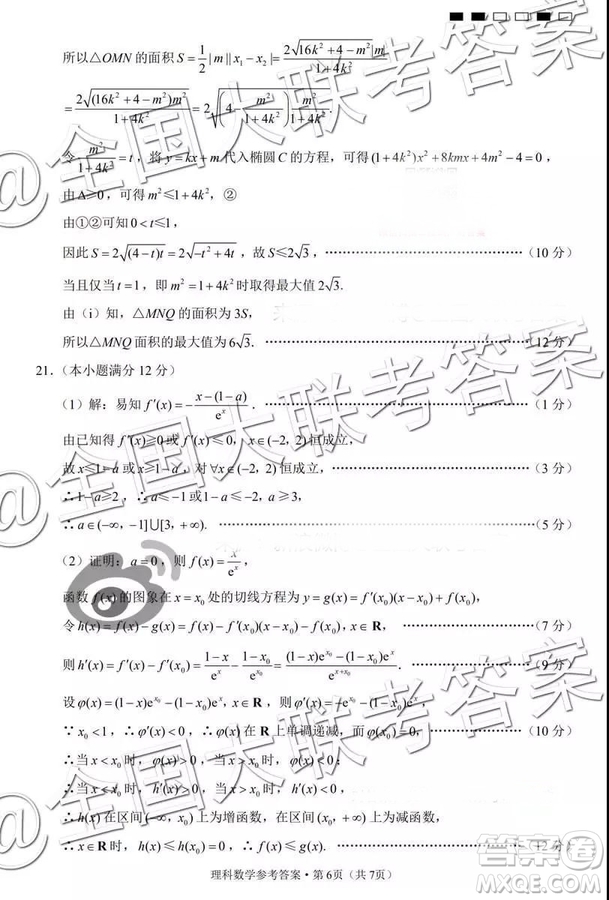 所以△OMN的面积 S = 1/2 |m||x₁ − x₂| = 2√(16k² + 4 − m²)|m| / (1 + 4k²)
= 2√((16k² + 4 − m²)m²) / (1 + 4k²) = 2√((4 − m²/(1 + 4k²)) m²/(1 + 4k²)).
令 m²/(1 + 4k²) = t，将 y = kx + m 代入椭圆 C 的方程，可得 (1 + 4k²)x² + 8kmx + 4m² − 4 = 0，
由 Δ ≥ 0，可得 m² ≤ 1 + 4k²，②
由①②可知 0 < t ≤ 1，
因此 S = 2√((4 − t)t) = 2√(−t² + 4t)，故 S ≤ 2√3，…………（10 分）
当且仅当 t = 1，即 m² = 1 + 4k² 时取得最大值 2√3.
由（i）知，△MNQ 的面积为 3S，
所以△MNQ 面积的最大值为 6√3. …………（12 分）
21.（本小题满分 12 分）
（1）解：易知 f′(x) = − (x − (1 − a))/eˣ. …………（1 分）
由已知得 f′(x) ≥ 0 或 f′(x) ≤ 0，x∈(−2，2) 恒成立，
故 x ≤ 1 − a 或 x ≥ 1 − a，对 ∀x∈(−2，2) 恒成立，…………（3 分）
∴1 − a ≥ 2，∴a ≤ −1 或 1 − a ≤ −2，∴a ≥ 3，
∴a∈(−∞，−1]∪[3，+∞). …………（5 分）
（2）证明：a = 0，则 f(x) = x/eˣ，
函数 f(x) 的图象在 x = x₀ 处的切线方程为 y = g(x) = f′(x₀)(x − x₀) + f(x₀)，
令 h(x) = f(x) − g(x) = f(x) − f′(x₀)(x − x₀) − f(x₀)，x∈R，…………（7 分）
则 h′(x) = f′(x) − f′(x₀) = (1 − x)/eˣ − (1 − x₀)/e^(x₀) = ((1 − x)e^(x₀) − (1 − x₀)eˣ)/e^(x + x₀). …………（9 分）
设 φ(x) = (1 − x)e^(x₀) − (1 − x₀)eˣ，x∈R，则 φ′(x) = −e^(x₀) − (1 − x₀)eˣ，
∵x₀ < 1，∴φ′(x) < 0，∴φ(x) 在 R 上单调递减，而 φ(x₀) = 0，…………（10 分）
∴当 x < x₀ 时，φ(x) > 0，当 x > x₀ 时，φ(x) < 0，
∴当 x < x₀ 时，h′(x) > 0，当 x > x₀ 时，h′(x) < 0，
∴h(x) 在区间 (−∞，x₀) 上为增函数，在区间 (x₀，+∞) 上为减函数，
∴x∈R 时，h(x) ≤ h(x₀) = 0，∴f(x) ≤ g(x). …………（12 分）
理科数学参考答案·第 6 页（共 7 页）
@全国大联考答案
@全国大联考答案
@全国大联考答案
答案圈
MXQE.COM